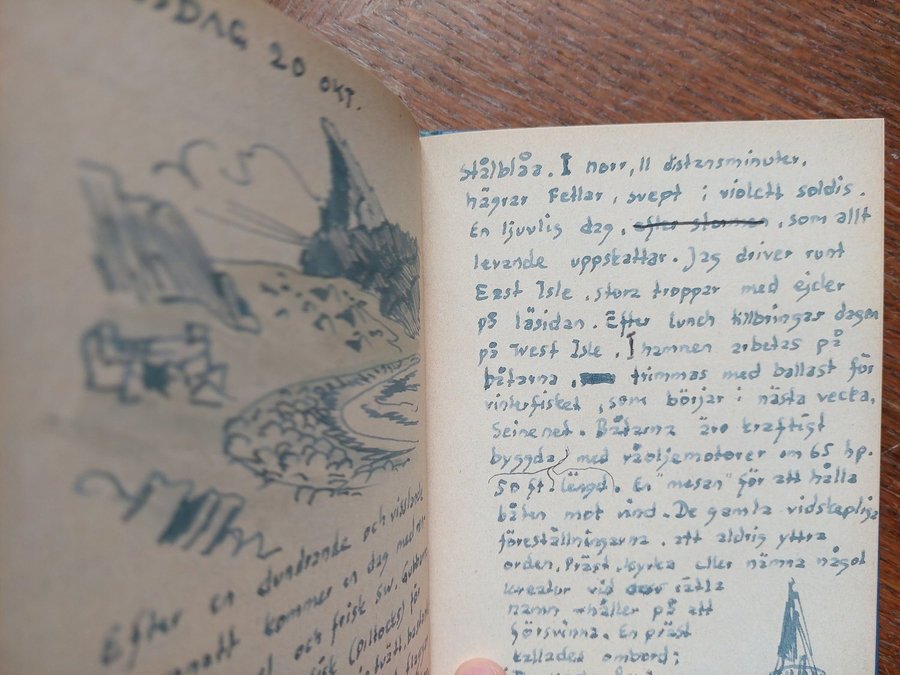 SDAG 20 OKT.
Efter en dundrande och visslande
natt kommer en dag med
och frisk SW.
(Pillocks) för
tvätt,
stålblåa. I norr, 11 distansminuter,
hägrar Fetlar, svept i violett soldis.
En ljuvlig dag, efter stormen, som allt
levande uppskattar. Jag driver runt
East Isle, stora troppar med ejder
på läsidan. Efter lunch tillbringas dagen
på West Isle. I hamnen arbetas på
båtarna, trimmas med ballast för
vinterfisket, som börjar i nästa vecka.
Seinenet. Båtarna äro kraftigt
byggda med råoljemotorer om 65 hp.
50 ft. längd. En "mesan" för att hålla
båten mot vind. De gamla vidskepliga
föreställningarna, att aldrig yttra
orden, Präst, kyrka eller nämna något
kreatur vid rätta
namn håller på att
försvinna. En präst
kallades ombord;